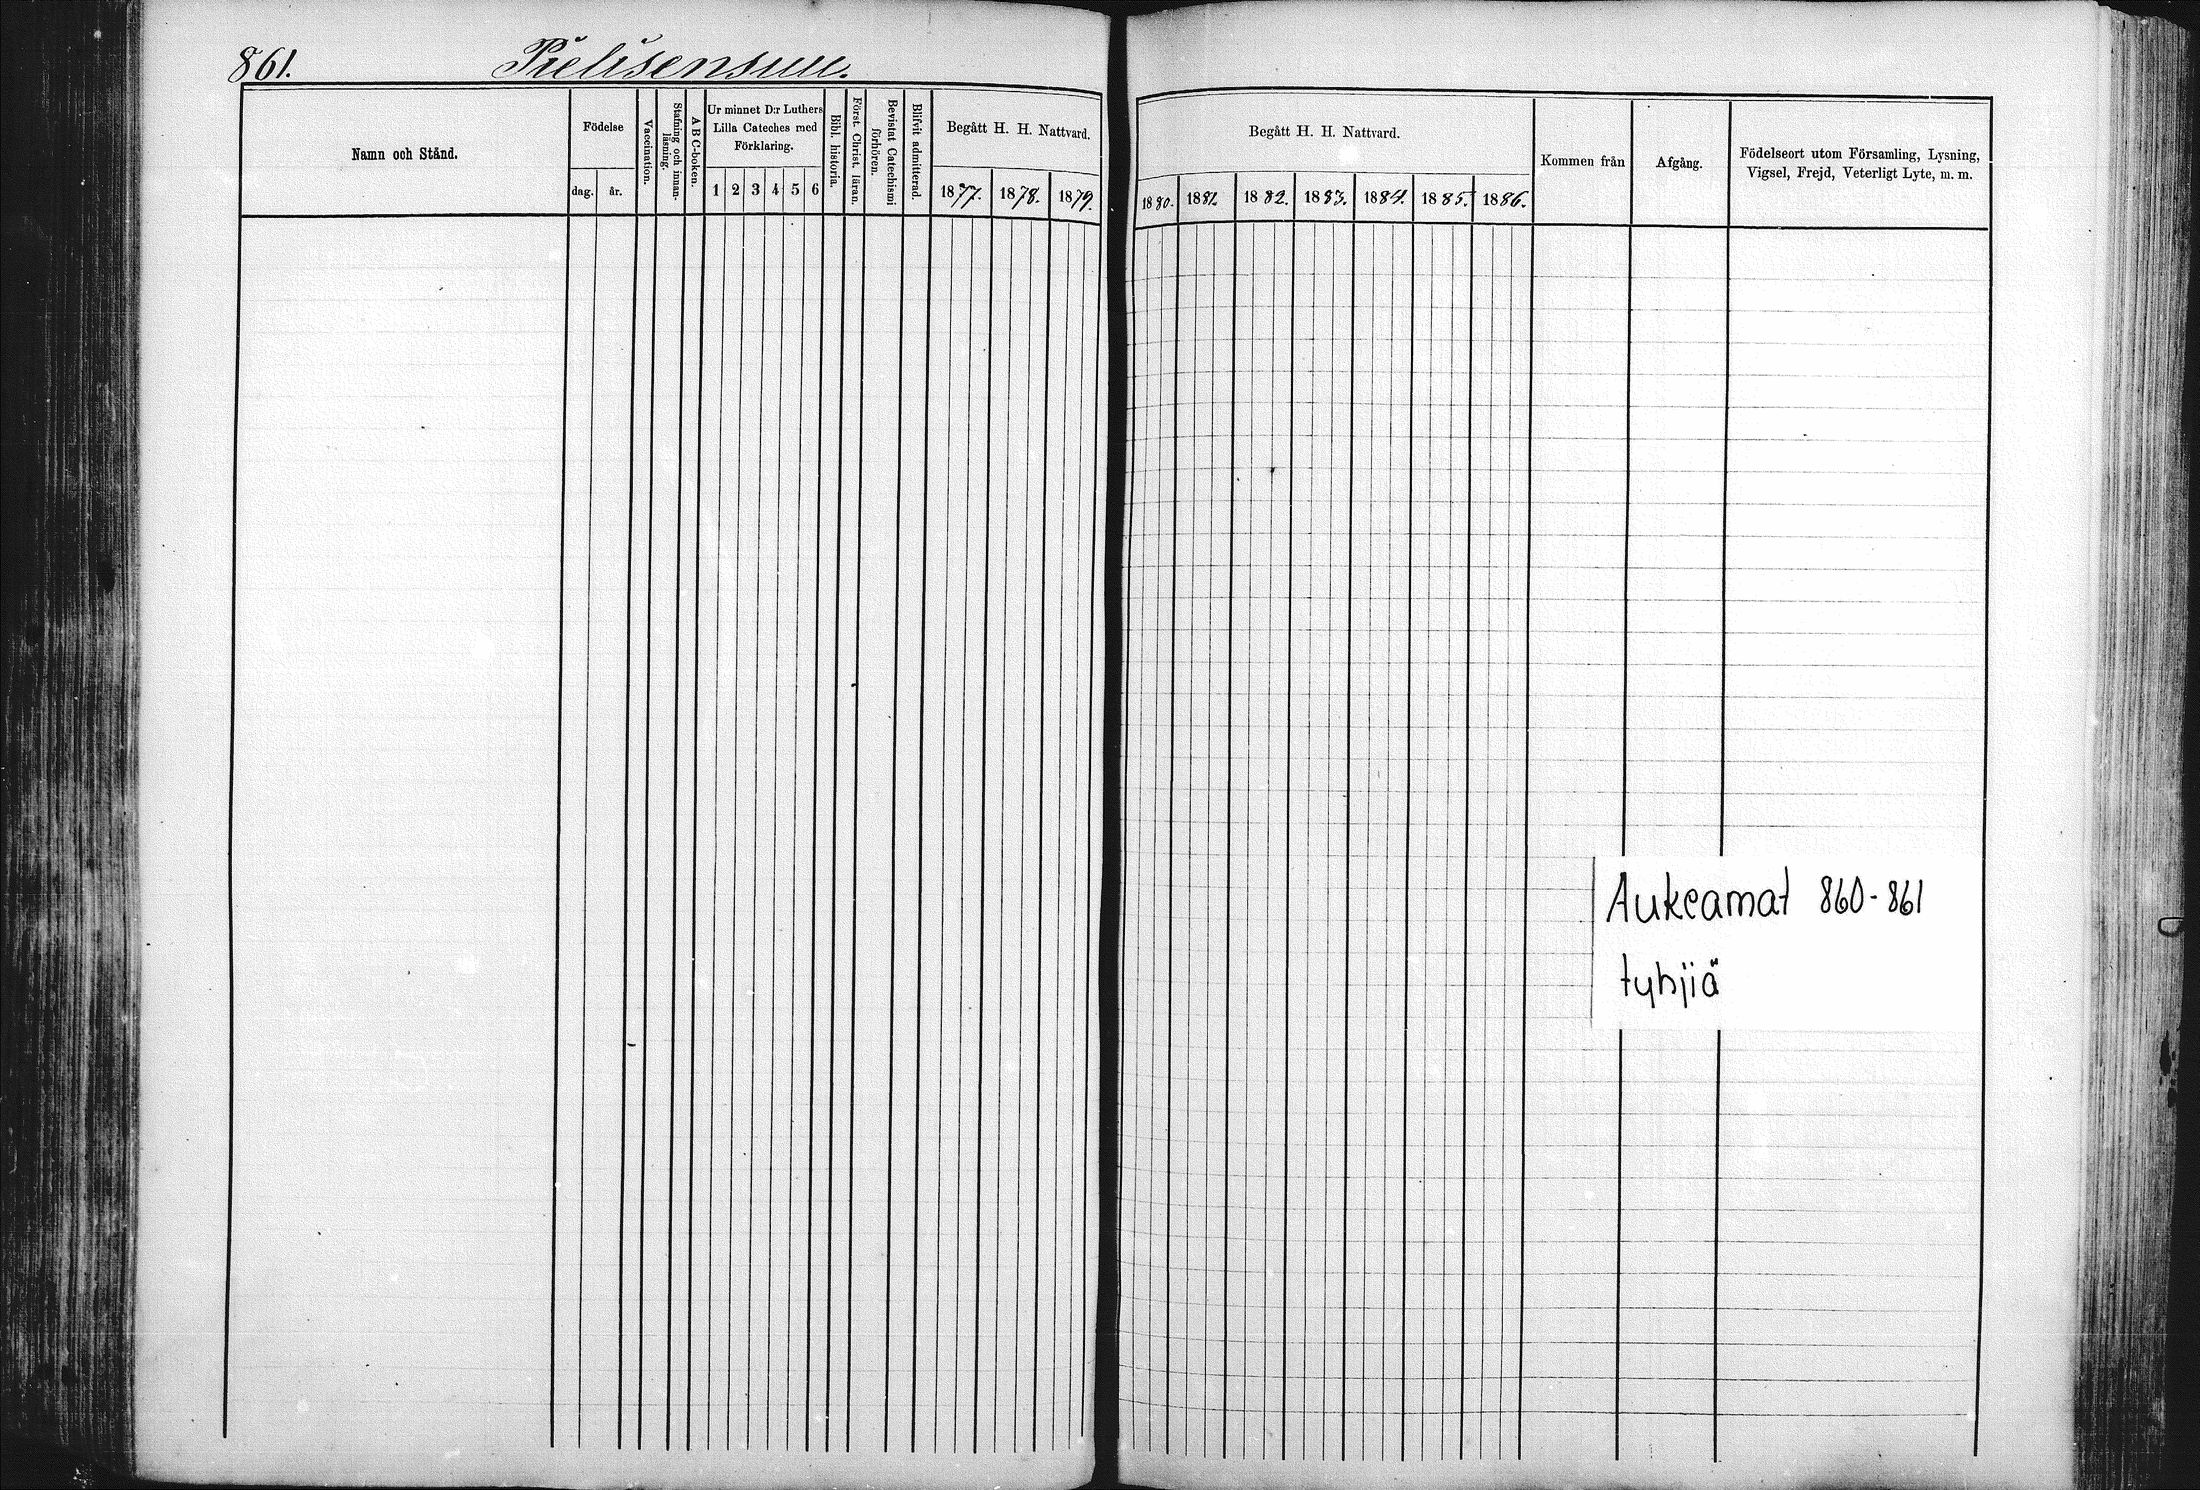 861. Pielisensuu.
Namn och Stånd.
Födelse
dag. år.
Vaccination.
Stafning och innan-
läsning.
A B C-boken.
Ur minnet D:r Luthers
Lilla Cateches med
Förklaring.
1 2 3 4 5 6
Bibl. historia.
Först. Christ. läran.
Bevistat Catechismi
förhören.
Blifvit admitterad.
Begått H. H. Nattvard.
1877. 1878. 1879.
Begått H. H. Nattvard.
1880. 1881. 1882. 1883. 1884. 1885. 1886.
Kommen från
Afgång.
Födelseort utom Församling, Lysning,
Vigsel, Frejd, Veterligt Lyte, m. m.
Aukeamat 860-861
tyhjiä